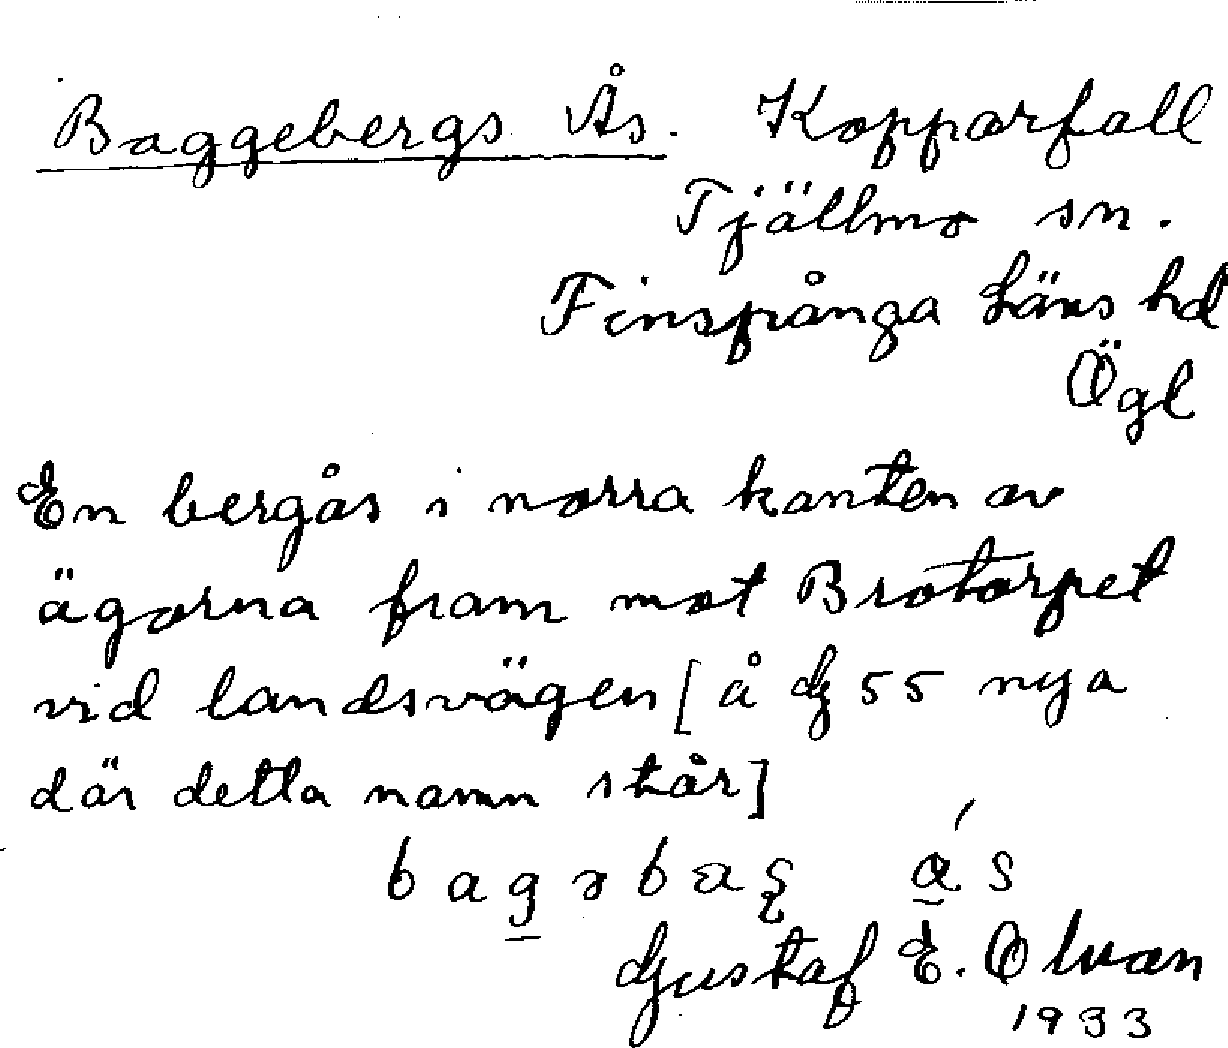 Baggebergs Ås. Kopparfall
Tjällmo sn.
Finspånga läns hd
Ögl
En bergås i norra kanten av
ägorna fram mot Brotorpet
vid landsvägen [å Gg 55 nya
där detta namn står]
Gustaf E. Olvan
1933